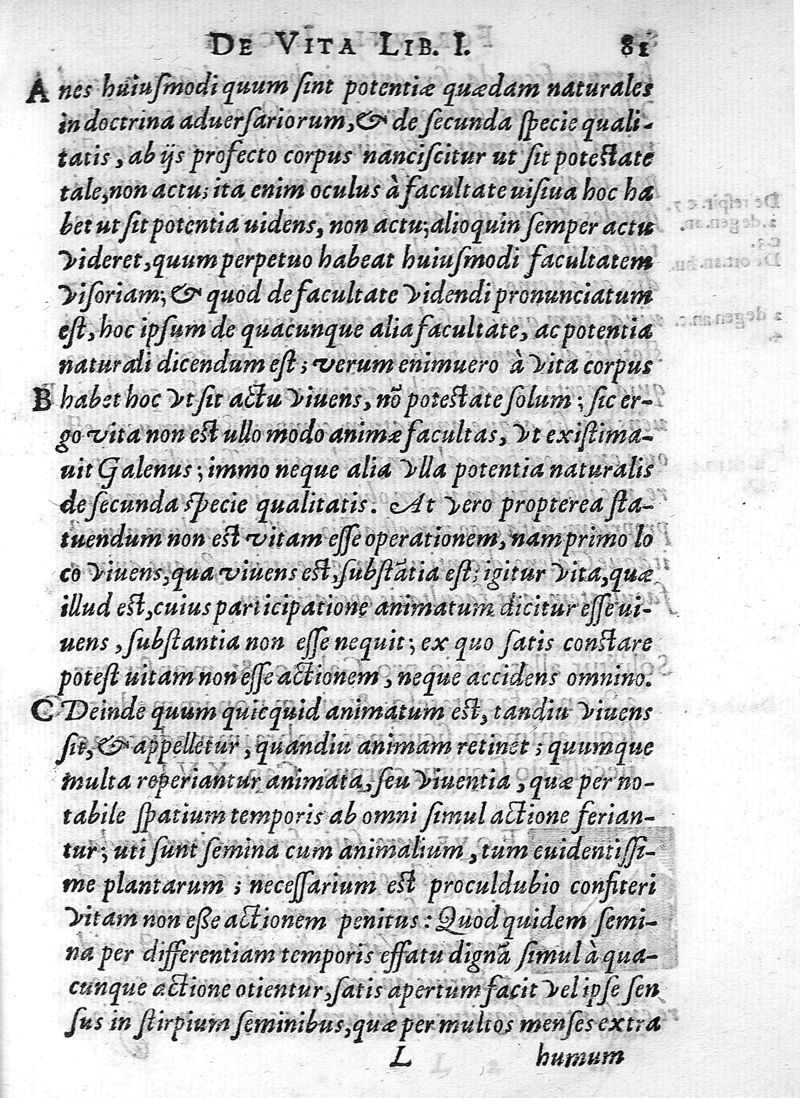 DE VITA LIB. I. 81
A nes huiuſmodi quum ſint potentiæ quædam naturales
in doctrina aduerſariorum, & de ſecunda ſpecie quali-
tatis, ab ijs profecto corpus nanciſcitur ut ſit poteſtate
tale, non actu; ita enim oculus à facultate uiſiua hoc ha
bet ut ſit potentia uidens, non actu; alioquin ſemper actu
videret, quum perpetuo habeat huiuſmodi facultatem
viſoriam; & quod de facultate videndi pronunciatum
eſt, hoc ipſum de quacunque alia facultate, ac potentia
naturali dicendum eſt; verum enimuero à vita corpus
B habet hoc vt ſit actu viuens, nõ poteſtate ſolum; ſic er-
go vita non eſt ullo modo animæ facultas, vt exiſtima-
uit Galenus; immo neque alia vlla potentia naturalis
de ſecunda ſpecie qualitatis. At vero propterea ſta-
tuendum non eſt vitam eſſe operationem, nam primo lo
co viuens, qua viuens eſt, ſubſtãtia eſt; igitur vita, quæ
illud eſt, cuius participatione animatum dicitur eſſe ui-
uens, ſubſtantia non eſſe nequit; ex quo ſatis conſtare
poteſt uitam non eſſe actionem, neque accidens omnino.
C Deinde quum quicquid animatum eſt, tandiu viuens
ſit, & appelletur, quandiu animam retinet; quumque
multa reperiantur animata, ſeu viuentia, quæ per no-
tabile ſpatium temporis ab omni ſimul actione ferian-
tur; uti ſunt ſemina cum animalium, tum euidentiſſi-
me plantarum; neceſſarium eſt proculdubio confiteri
vitam non eße actionem penitus: Quod quidem ſemi-
na per differentiam temporis effatu dignã ſimul à qua-
cunque actione otientur, ſatis apertum facit vel ipſe ſen
ſus in ſtirpium ſeminibus, quæ per multos menſes extra
L humum